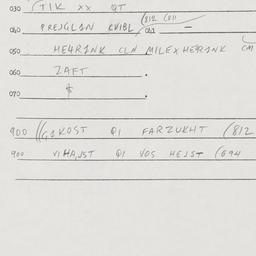 030 (TIK XX QT
(812 (811
040 PREJGLAN KVIBL / 041 —
050 HE4RINK CLN MILEXHE4RINK CM
060 ZAFT .
070 $ .
900 ((GIKOST QI FARZUKHT (812
900 VIHAJST QI VOS HEJST (694